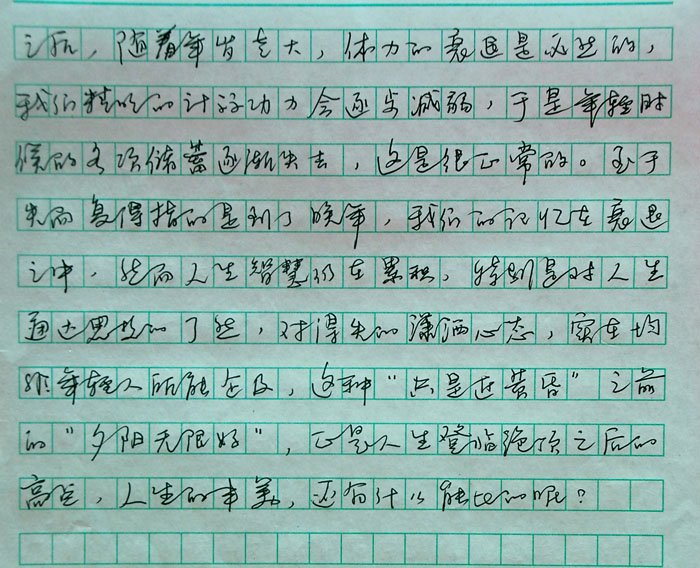 之后，随着年岁老大，体力的衰退是必然的，
我们精明的计算功力会逐步减弱，于是年轻时
候的各项储蓄逐渐失去，这是很正常的。至于
失而复得指的是到了晚年，我们的记忆在衰退
之中，然而人生智慧仍在累积，特别是对人生
通达思想的了然，对得失的潇洒心态，实在均
非年轻人所能企及，这种“只是近黄昏”之前
的“夕阳无限好”，正是人生登临绝顶之后的
高览，人生的丰美，还有什么能比的呢？